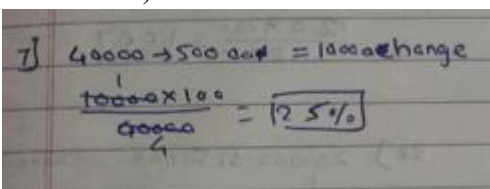 7] 40000 → 50000 = 10000 change
1
10000 × 100
40000
4
= 25%